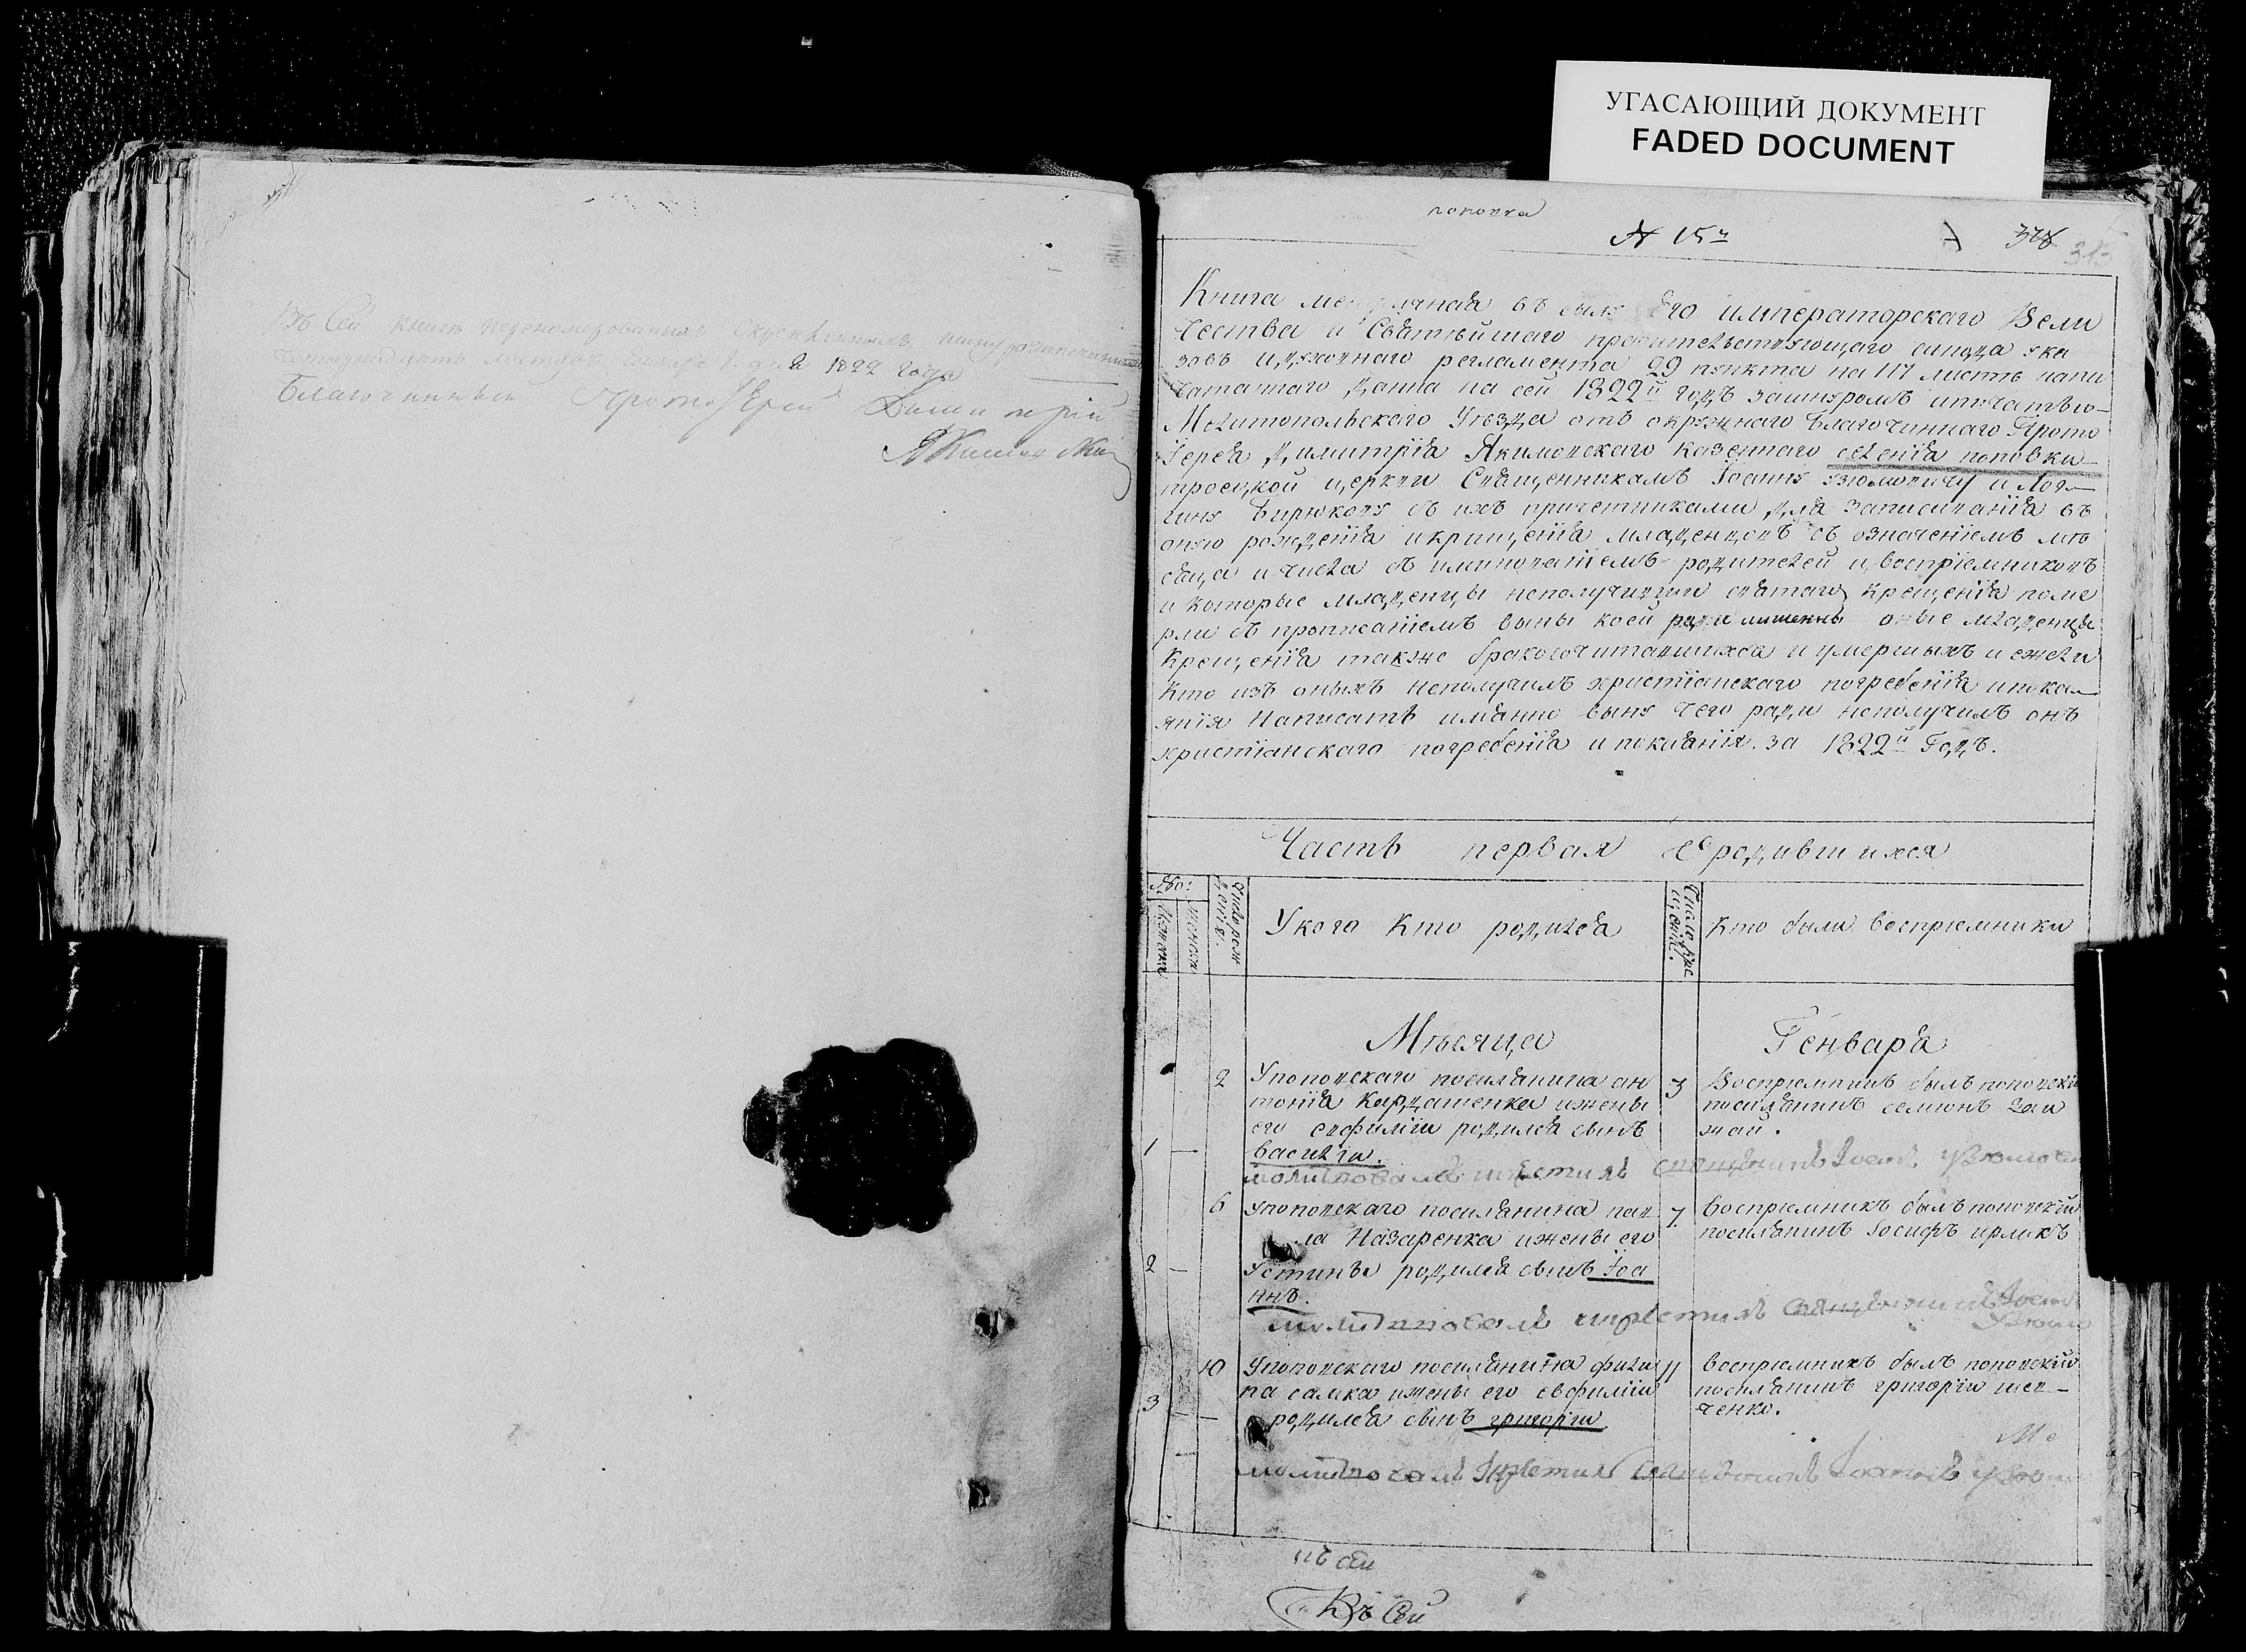 УГАСАЮЩИЙ ДОКУМЕНТ
FADED DOCUMENT
Въ Сей книгѣ перенумерованныхъ скрепленныхъ
листовъ Генваря 1. дня 1822 года
Благочинный Протоіерей Димитрій
поповка
№ 15й
Книга въ силу Его императорскаго Вели
чества и Святѣйшаго правительствующаго синода ука
зовъ и духовнаго регламента 29 пункта на 117 листѣ напи
чатаннаго данна на сей 1822й годъ зашнуромъ ипичатью
Мелитопольскаго Уезда отъ окружнаго благочиннаго Прото
Іерея Димитрія Якимовскаго казеннаго селенія поповки
троецкой церкви Священникамъ Іоанну узюмовичу и Лог
гину Бирюкову съ ихъ причетниками для записиванія въ
оную рожденія икрищенія младенцовъ съ означеніемъ мѣ
сяца и числа съ имянованіемъ родителей и воспріемниковъ
и которые младенцы неполучивши святаго крещенія поме
рли съ прописаніемъ вины коей ради лишенны оные младенцы
Крещенія также бракосочитавшихся и умершыхъ и ежели
Кто изъ оныхъ неполучилъ христіанскаго погребенія ипока
янія Написать имянно вину чего ради неполучилъ онъ
христіанскаго погребенія и покаянія. за 1822й Годъ.
Часть первая о родившихся
№о:
Мужеска
женска
Число рож
денія.
Укого Кто родился
Число кре
щенія.
Кто были воспріемники
Мѣсяца Генваря
2 Упоповскаго посилянина ан
тонія Кардашенка ижены
его евфиміи родился сынъ
1 — василій.
3 Воспріемникъ былъ поповскій
посилянинъ семіонъ
молитвовалъ икрестилъ священникъ Іоаннъ Узюмов
6 упоповскаго посилянина пав
ла Назаренка ижены его
2 — Устины родился сынъ Іоа
ннъ.
7 воспріемникъ былъ поповскій
посилянинъ Іосифъ ирликъ
молитвовалъ икрестилъ священникъ Іоаннъ
Узюмо
10 Упоповскаго посилянина фили
па самка ижены его евфиміи
3 — — родился сынъ григорій
11 воспріемникъ былъ поповскій
посилянинъ григорій шев
ченко.
Ме
молитвовалъ икрестилъ священникъ Іоаннъ Узюм
въ сей
Въ Сей